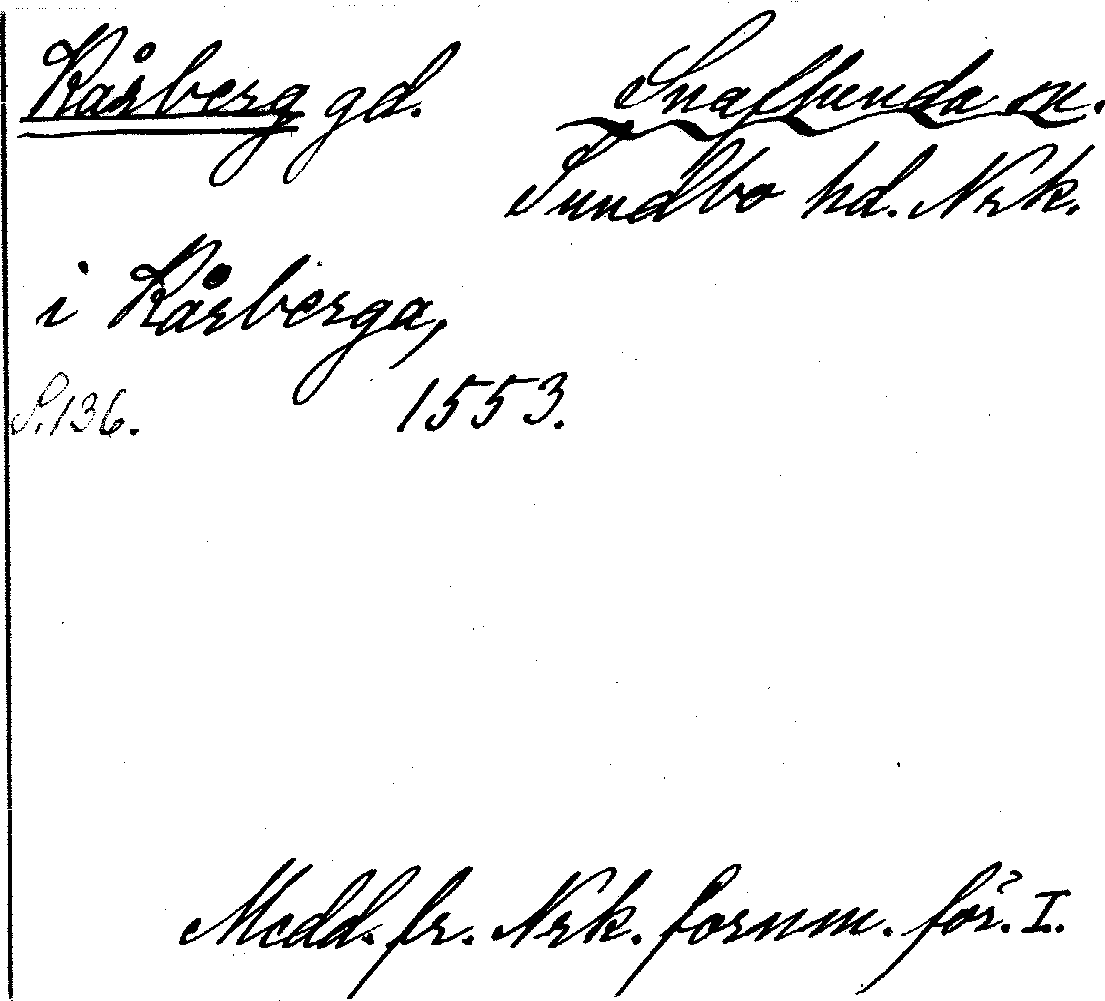 Kårberg gd. Snaflunda sn.
Sundbo hd. Nrk.
i Kårberga,
S. 136. 1553.
Medd. fr. Nrk. fornm. för. I.